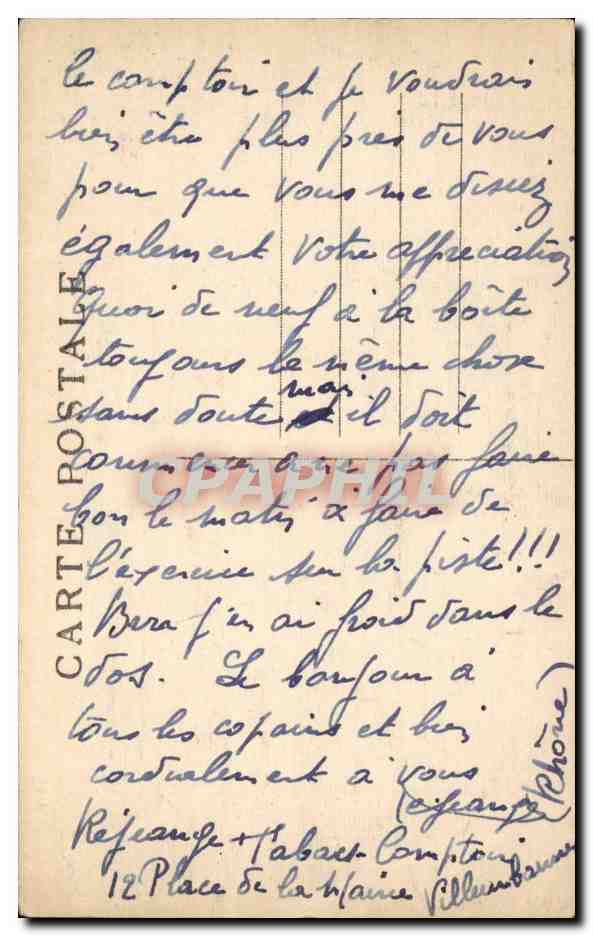 le comptoir et je voudrais
bien être plus près de vous
pour que vous me disiez
également votre appréciation
Quoi de neuf à la boîte
toujours la même chose
sans doute mais il doit
commencer à ne pas faire
bon le matin à faire de
l'exercice sur la piste!!!
Brrr j'en ai froid dans le
dos. Le bonjour à
tous les copains et bien
cordialement à vous
Réjeange
Réjeange Tabacs Comptoir
12 Place de la Mairie Villeurbanne
(Rhône)
CARTE POSTALE
CPAPHIL